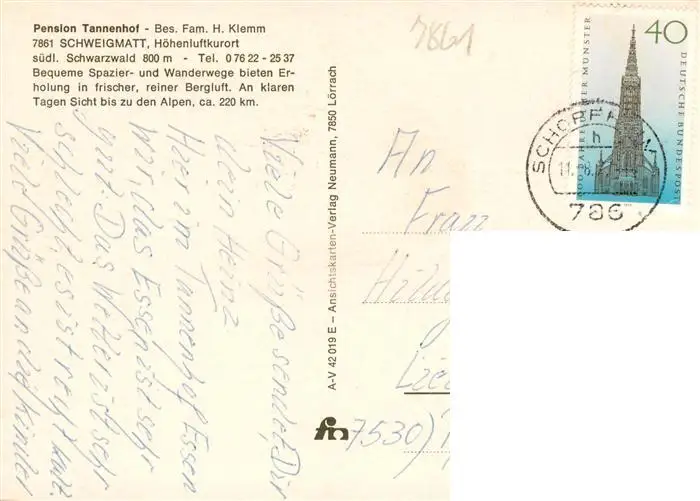 Pension Tannenhof - Bes. Fam. H. Klemm
7861 SCHWEIGMATT, Höhenluftkurort
südl. Schwarzwald 800 m - Tel. 0 76 22 - 25 37
Bequeme Spazier- und Wanderwege bieten Er-
holung in frischer, reiner Bergluft. An klaren
Tagen Sicht bis zu den Alpen, ca. 220 km.
Viele Grüße sendet Dir
dein Heinz
Hier im Tannenhof Essen
wir, das Essen ist sehr
gut. Das Wetter ist sehr
schlecht, es ist recht kalt.
Viele Grüße an die Kinder
A-V 42 019 E - Ansichtskarten-Verlag Neumann, 7850 Lörrach
7861
An
Frau
7530)
fn
40
DEUTSCHE BUNDESPOST
600 JAHRE ULMER MÜNSTER
SCHOPFHEIM
h
786